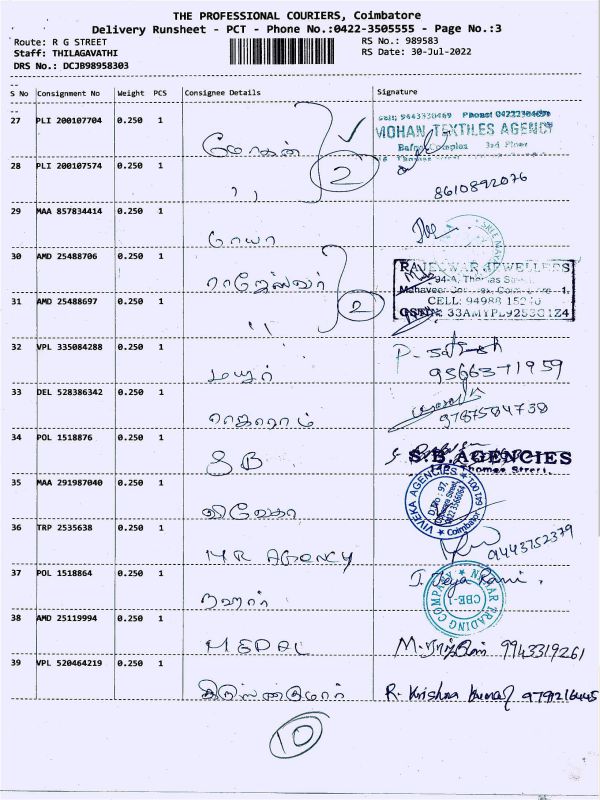 THE PROFESSIONAL COURIERS, Coimbatore
Delivery Runsheet - PCT - Phone No.:0422-3505555 - Page No.:3
Route: R G STREET RS No.: 989583
Staff: THILAGAVATHI RS Date: 30-Jul-2022
DRS No.: DCJB98958303
S No Consignment No Weight PCS Consignee Details Signature
27 PLI 200107704 0.250 1 மோகன்
Cell: 9443330469 Phone: 04222304696
MOHAN TEXTILES AGENCY
Bafna Complex 3rd Floor
28 PLI 200107574 0.250 1 ,, 2 8610892076
29 MAA 857834414 0.250 1
30 AMD 25488706 0.250 1 ராஜேஸ்வர்
RAJESWAR JEWELLERS
94-A, Thomas Street
31 AMD 25488697 0.250 1 ,, 2
CELL: 94988 15240
32 VPL 335084288 0.250 1 மயூர் P. 9566371959
33 DEL 528386342 0.250 1 ராஜாராம் 9787584738
34 POL 1518876 0.250 1 SB
S.B. AGENCIES
Thomas Street.
35 MAA 291987040 0.250 1 விவேகா
VIVEKA AGENCIES
36 TRP 2535638 0.250 1 MR AGENCY 9443752379
37 POL 1518864 0.250 1 நஹார் J. Jeya Rani.
NAHAR TRADING COMPANY CBE-1
38 AMD 25119994 0.250 1 MEDAL M. 9943319261
39 VPL 520464219 0.250 1 கிருஷ்ணகுமார் R. Krishna Kumar
10